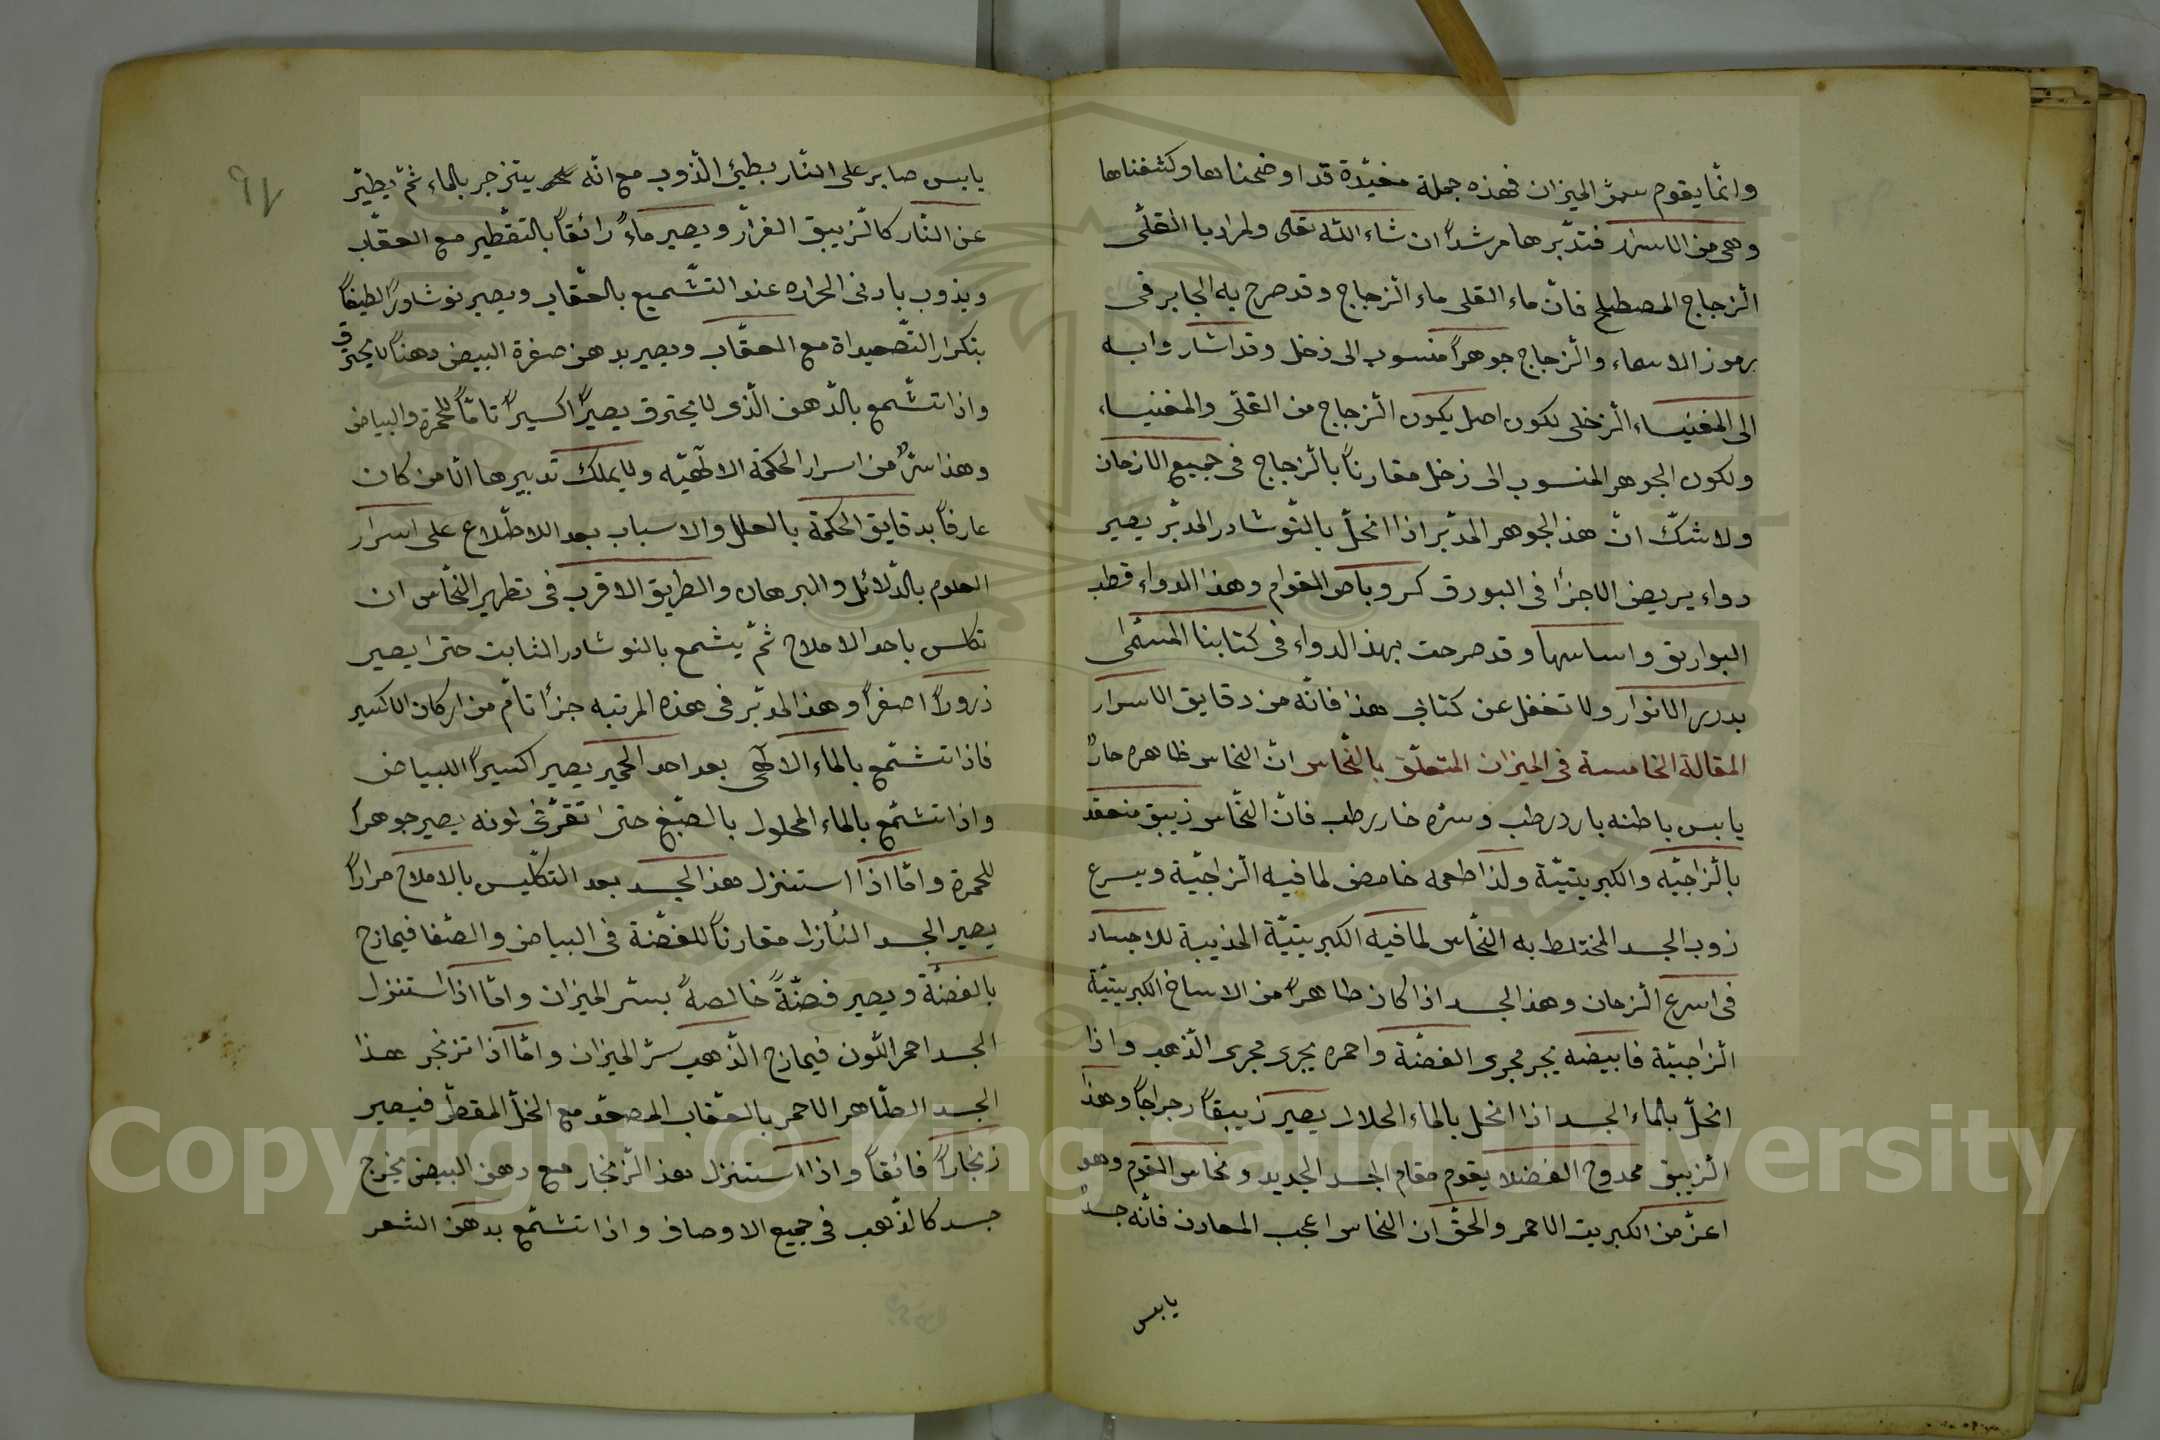 وانّما يقوم بسرّ الميزان فهذه جملة مفيّدة قد اوضحناها وكشفناها
وهى من الاسرار فتدبّرها مرشداً ان شاء الله تعالى والمراد بالقلّى
الزجاج المصطلح فانّ ماء القلى ماء الزجاج وقد صرح به الجابر فى
رموز الاسماء والزجاج جوهراً منسوب الى زحل وقد اشاروا به
الى المغنيساء الزحلى لكون اصل يكون الزجاج من القلّى والمغنيساء
ولكون الجوهر المنسوب الى زحل مقارناً بالزجاج فى جميع الازمان
ولا شكّ انّ هذ الجوهر المدبّر اذا انحلّ بالنّوشادر المدبّر يصير
دواء يربض الاجزاً فى البورق كروباص القوام وهذا الدواء قطب
البوارق واساسها وقد صرحت بهذ الدواء فى كتابنا المسمّى
بدرر الانوار ولا تغفل عن كتابى هذا فانّه من دقايق الاسرار
المقالة الخامسة فى الميزان المتعلّق بالنّحاس انّ النحاس ظاهره حارٌ
يابس باطنه بارد رطب وسرّه حار رطب فانّ النّحاس زيبق منعقد
بالزّاجيّه والكبريتيّة ولذا طعمه حامض لما فيه الزاجيّة ويسرع
زوب الجسد المختلط به النّحاس لما فيه الكبريتيّة المذيبة للاجساد
فى اسرع الزمان وهذ الجسد اذا كان طاهراً من الاوساخ الكبريتيّة
الزاجيّة فابيضه يجر مجرى الفضّة واحمره يجرى مجرى الذهب واذا
انحلّ بالماء الجسد اذا انحل بالماء الحلال يصير زيبقاً رجراجاً وهذا
الزيبق ممدوح الفضلا يقوم مقام الجسد الجديد ونحاس القوم وهو
اعزّ من الكبريت الاحمر والحقّ ان النحاس اعجب المعادن فانّه جسدٌ
يابس
٩٧
يابس صابر على النّار بطيئ الذّوب مع انّه يتزجر بالماء ثمّ يطيّر
عن النّار كالزيبق الفرّار ويصير ماءً رائقاً بالتقطير مع العقاب
ويذوب بادنى الحراره عند التّشميع بالعقّاب ويصير نوشادراً لطيفاً
بتكرار التّصعيداة مع العقّاب ويصير بدهن صفرة البيض دهناً لا يحترق
واذا تشّمع بالدّهن الّذى لا يحترق يصيرٌ اكسيراً تامّاً للحمرة والبياض
وهذا سرٌّ من اسرار الحكمة الالٓهيّه ولا يملك تدبيرها الّا من كان
عارفاً بدقايق الحكمة بالعلل والاسباب بعد الاطّلاع على اسرار
العلوم بالدّلائل والبرهان والطريق الاقرب فى تطهير النحّاس ان
تكلس باحد الاملاح ثمّ يشمع بالنوشادر الثابت حتى يصير
ذروراً اصفراً وهذ المدبّر فى هذه المرتبه جزأ تامّ من اركان الاكسير
فاذا تشمّع بالماء الالٓهى بعد احد الحمير يصير اكسيراً للبياض
واذا تشمّع بالماء المحلول بالصّبغ حتى لونه يصير جوهراً
للحمرة وامّا اذا استنزل هذ الجسد بعد التّكليس بالاملاح مراراً
يصير الجسد النّازل مقارناً للفضّة فى البياض والصّفا فيمازح
بالفضّة ويصير فضّةً خالصةً بسّر الميزان وامّا اذا استنزل
الجسد احمر اللّون فيمازح الذّهب سرّ الميزان وامّا اذا تزنجر هذا
الجسد الطّاهر الاحمر بالعقاب المصعّد مع الخلّ المقطّر فيصير
زنجاراً فائقاً واذا استنزل هذ الزّنجار مع دهن البيض يخرج
جسد كالذّهب فى جميع الاوصاف واذا تشمّع بدهن الشعر
Copyright © King Saud University